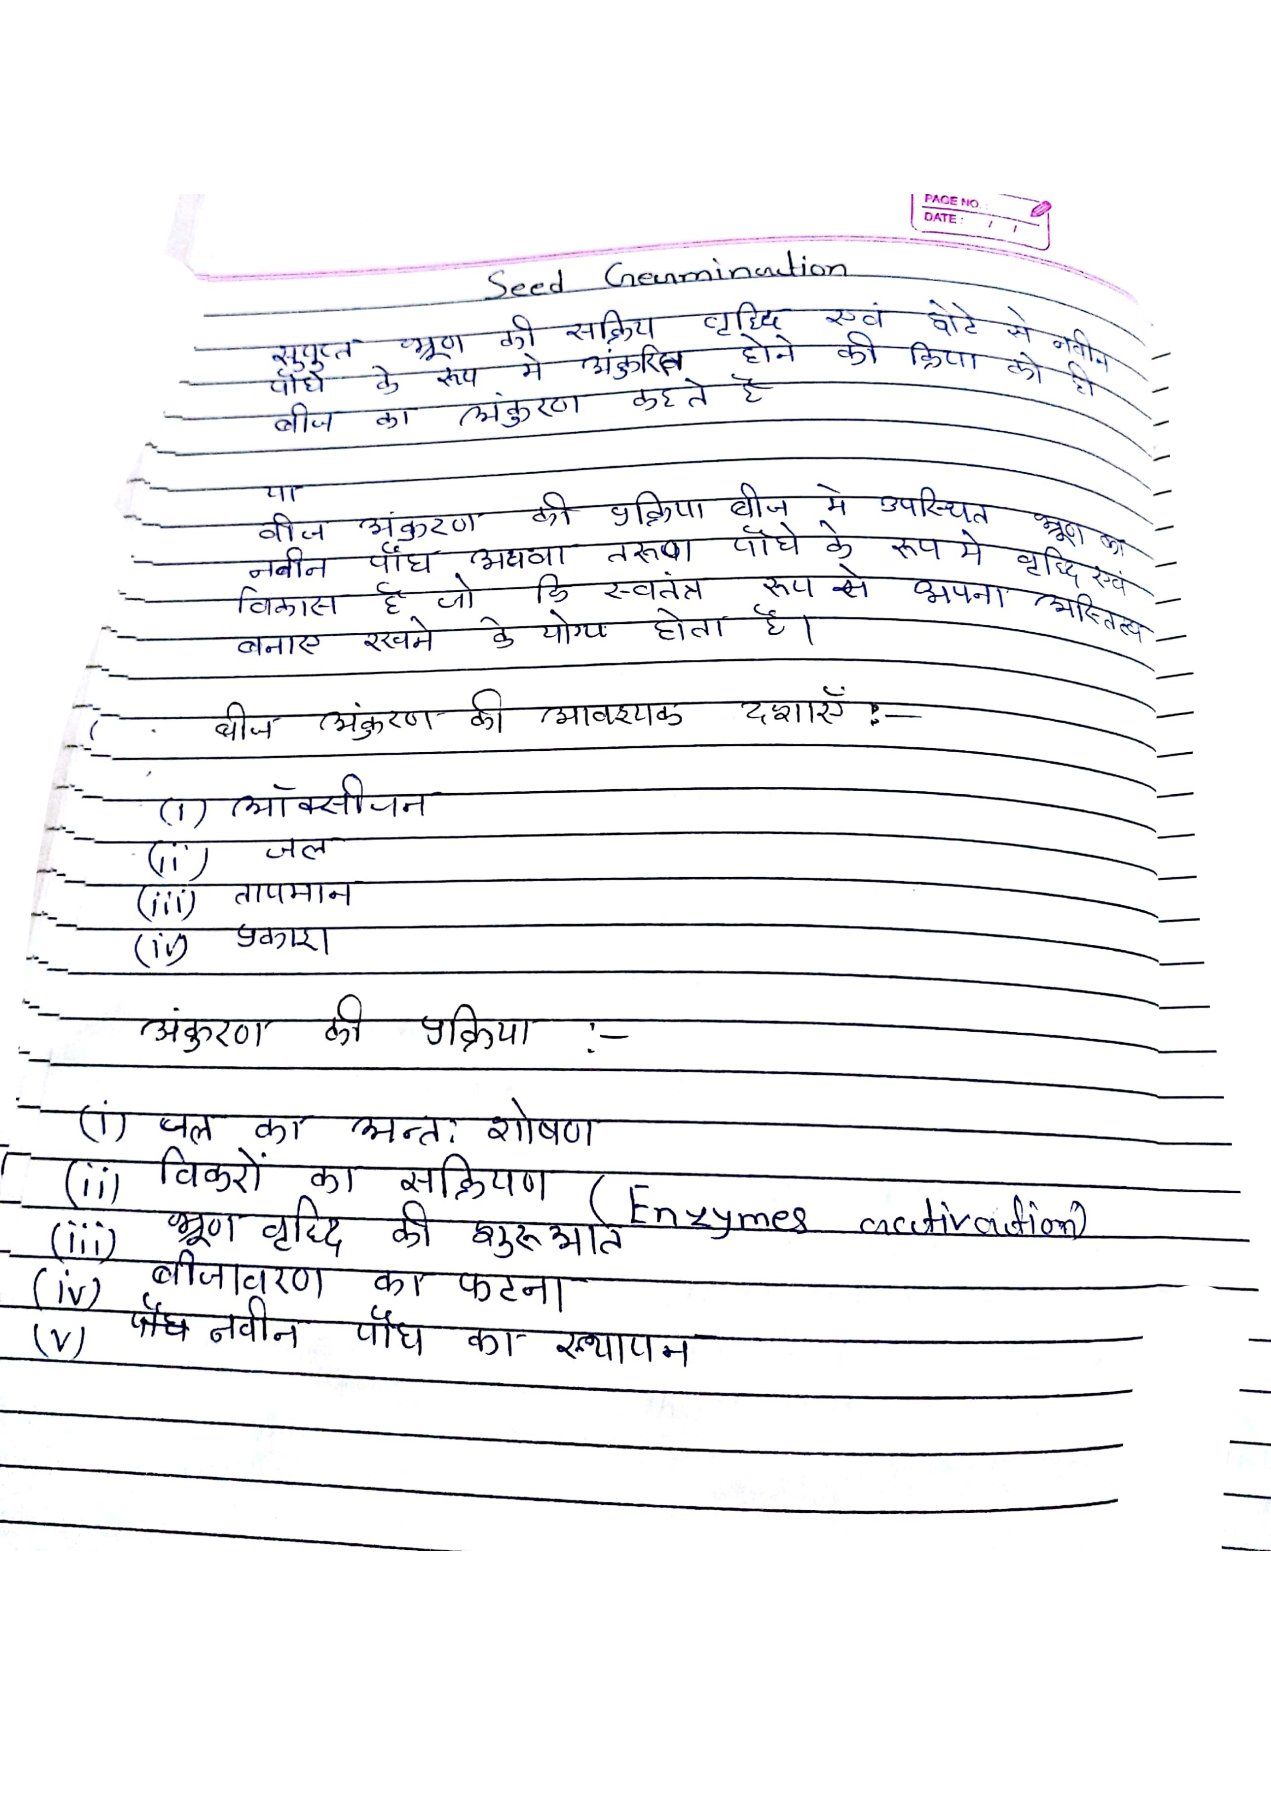 PAGE NO. :
DATE : / /
Seed Germination
सुषुप्त भ्रूण की सक्रिय वृध्दि एवं छोटे से नवीन
पौधे के रूप मे अंकुरित होने की क्रिया को ही
बीज का अंकुरण कहते है
या
बीज अंकुरण की प्रक्रिया बीज मे उपस्थित भ्रूण का
नवीन पौध अथवा तरूण पौधे के रूप मे वृध्दि एवं
विकास है जो कि स्वतंत्र रूप से अपना अस्तित्व
बनाए रखने के योग्य होता है।
बीज अंकुरण की आवश्यक दशाएँ :-
(i) ऑक्सीजन
(ii) जल
(iii) तापमान
(iv) प्रकाश
अंकुरण की प्रक्रिया :-
(i) जल का अन्त: शोषण
(ii) विकरों का सक्रियण (Enzymes activation)
(iii) भ्रूण वृध्दि की शुरूआत
(iv) बीजावरण का फटना
(v) पौध नवीन पौध का स्थापन